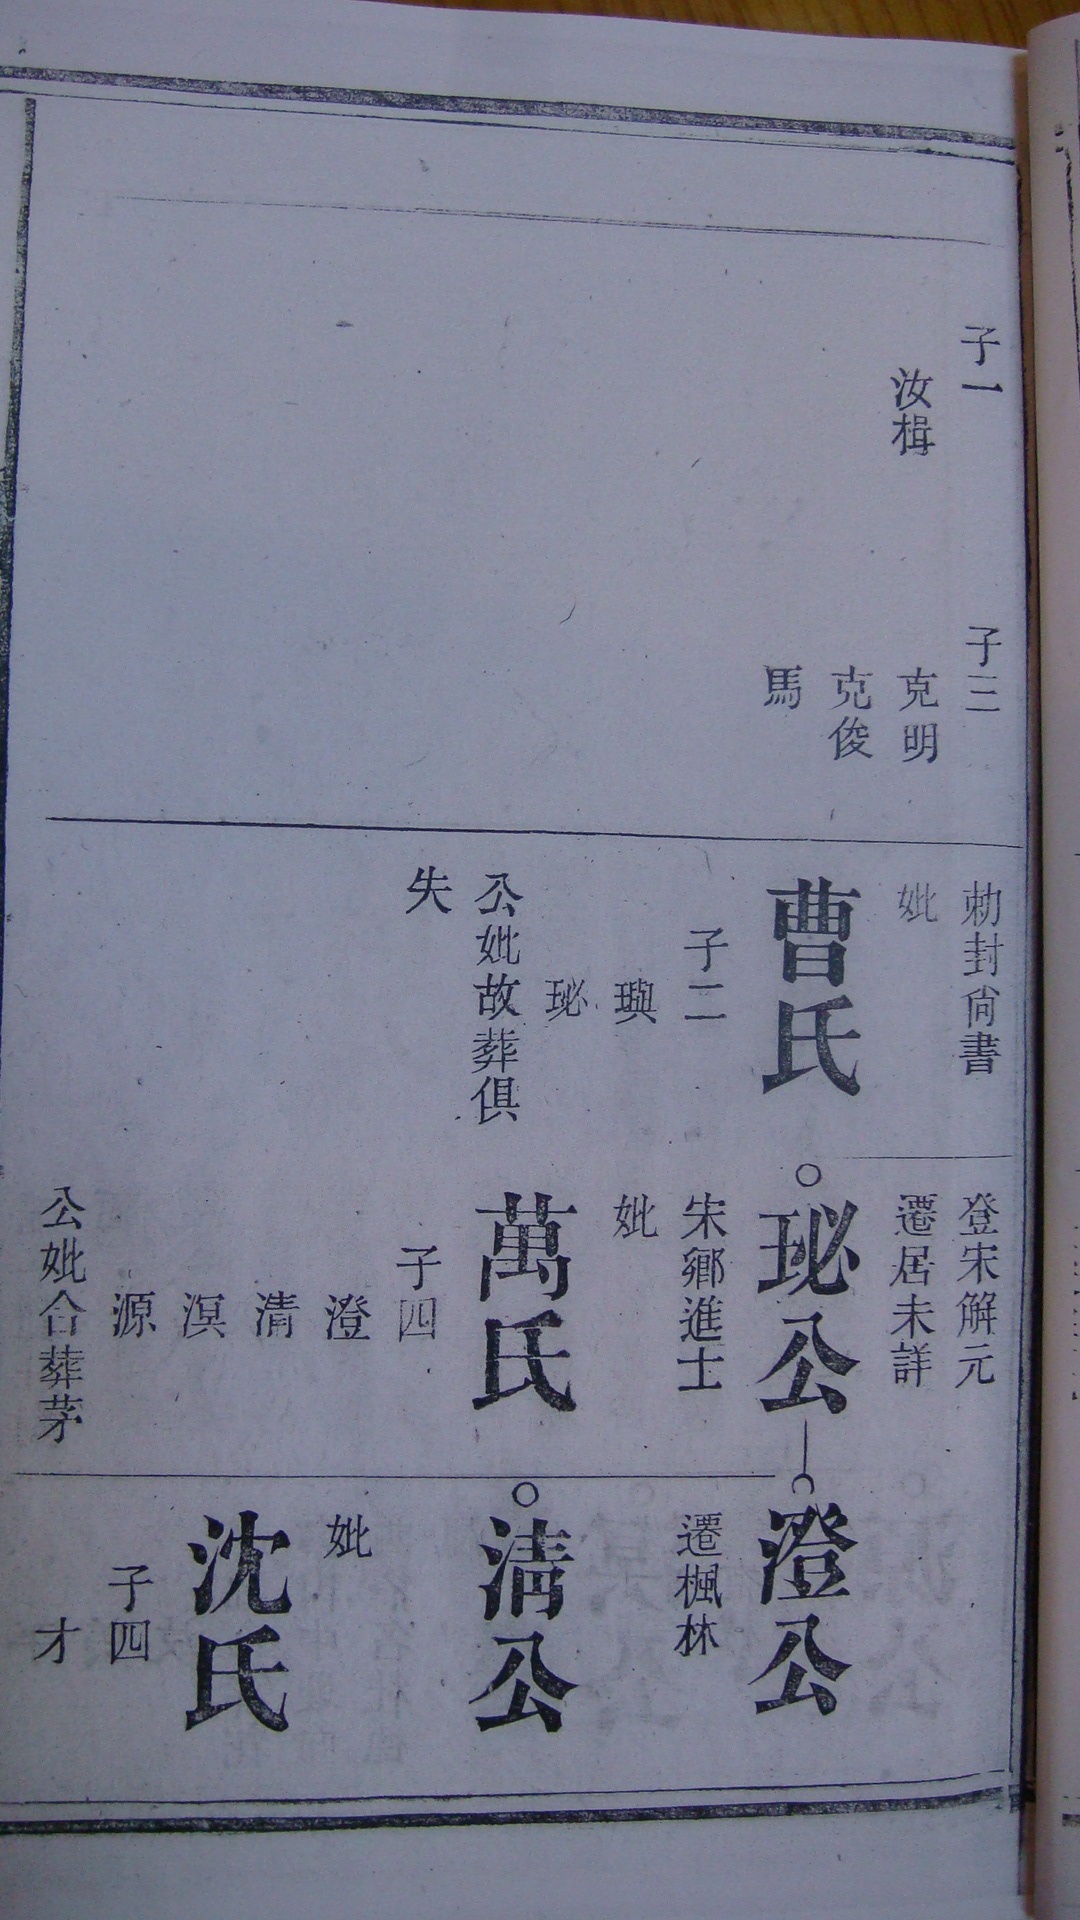 子一
汝楫
子三
克明
克俊
馬
勅封尙書
妣
曹氏
子二
璵
珌
公妣故葬俱
失
登宋解元
遷居未詳
珌公
宋鄉進士
妣
萬氏
子四
澄
清
溟
源
公妣合葬茅
澄公
遷楓林
清公
妣
沈氏
子四
才